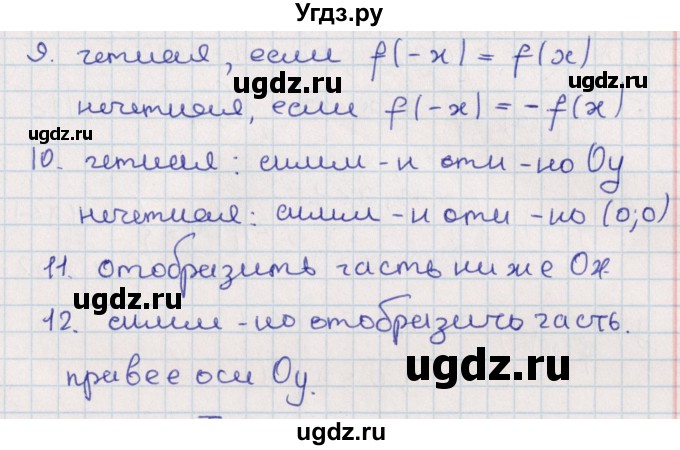 Угдз.ру
9. четная, если f(-x) = f(x)
ugdz.ru
нечетная, если f(-x) = -f(x)
ugdz.ru ugdz.ru
10. четная: симм-н отн-но Oy
нечетная: симм-н отн-но (0;0)
11. отобразить часть ниже Ox
ugdz.ru
12. симм-но отобразить часть.
ugdz.ru
правее оси Oy.
ugdz.ru